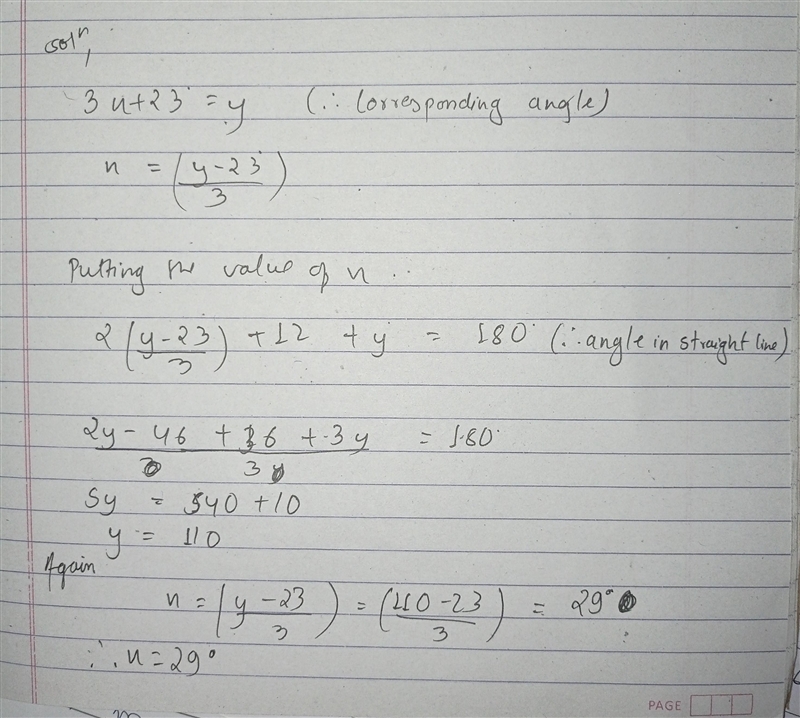 solⁿ,
3x+23° = y (∴ Corresponding angle)
x = (y-23°/3)
Putting the value of x ..
2(y-23/3) + 12 + y = 180° (∴ angle in straight line)
2y - 46 + 36 + 3y / 3 = 180°
5y = 540 + 10
y = 110
Again
x = (y-23/3) = (110-23/3) = 29°
∴ x = 29°
PAGE